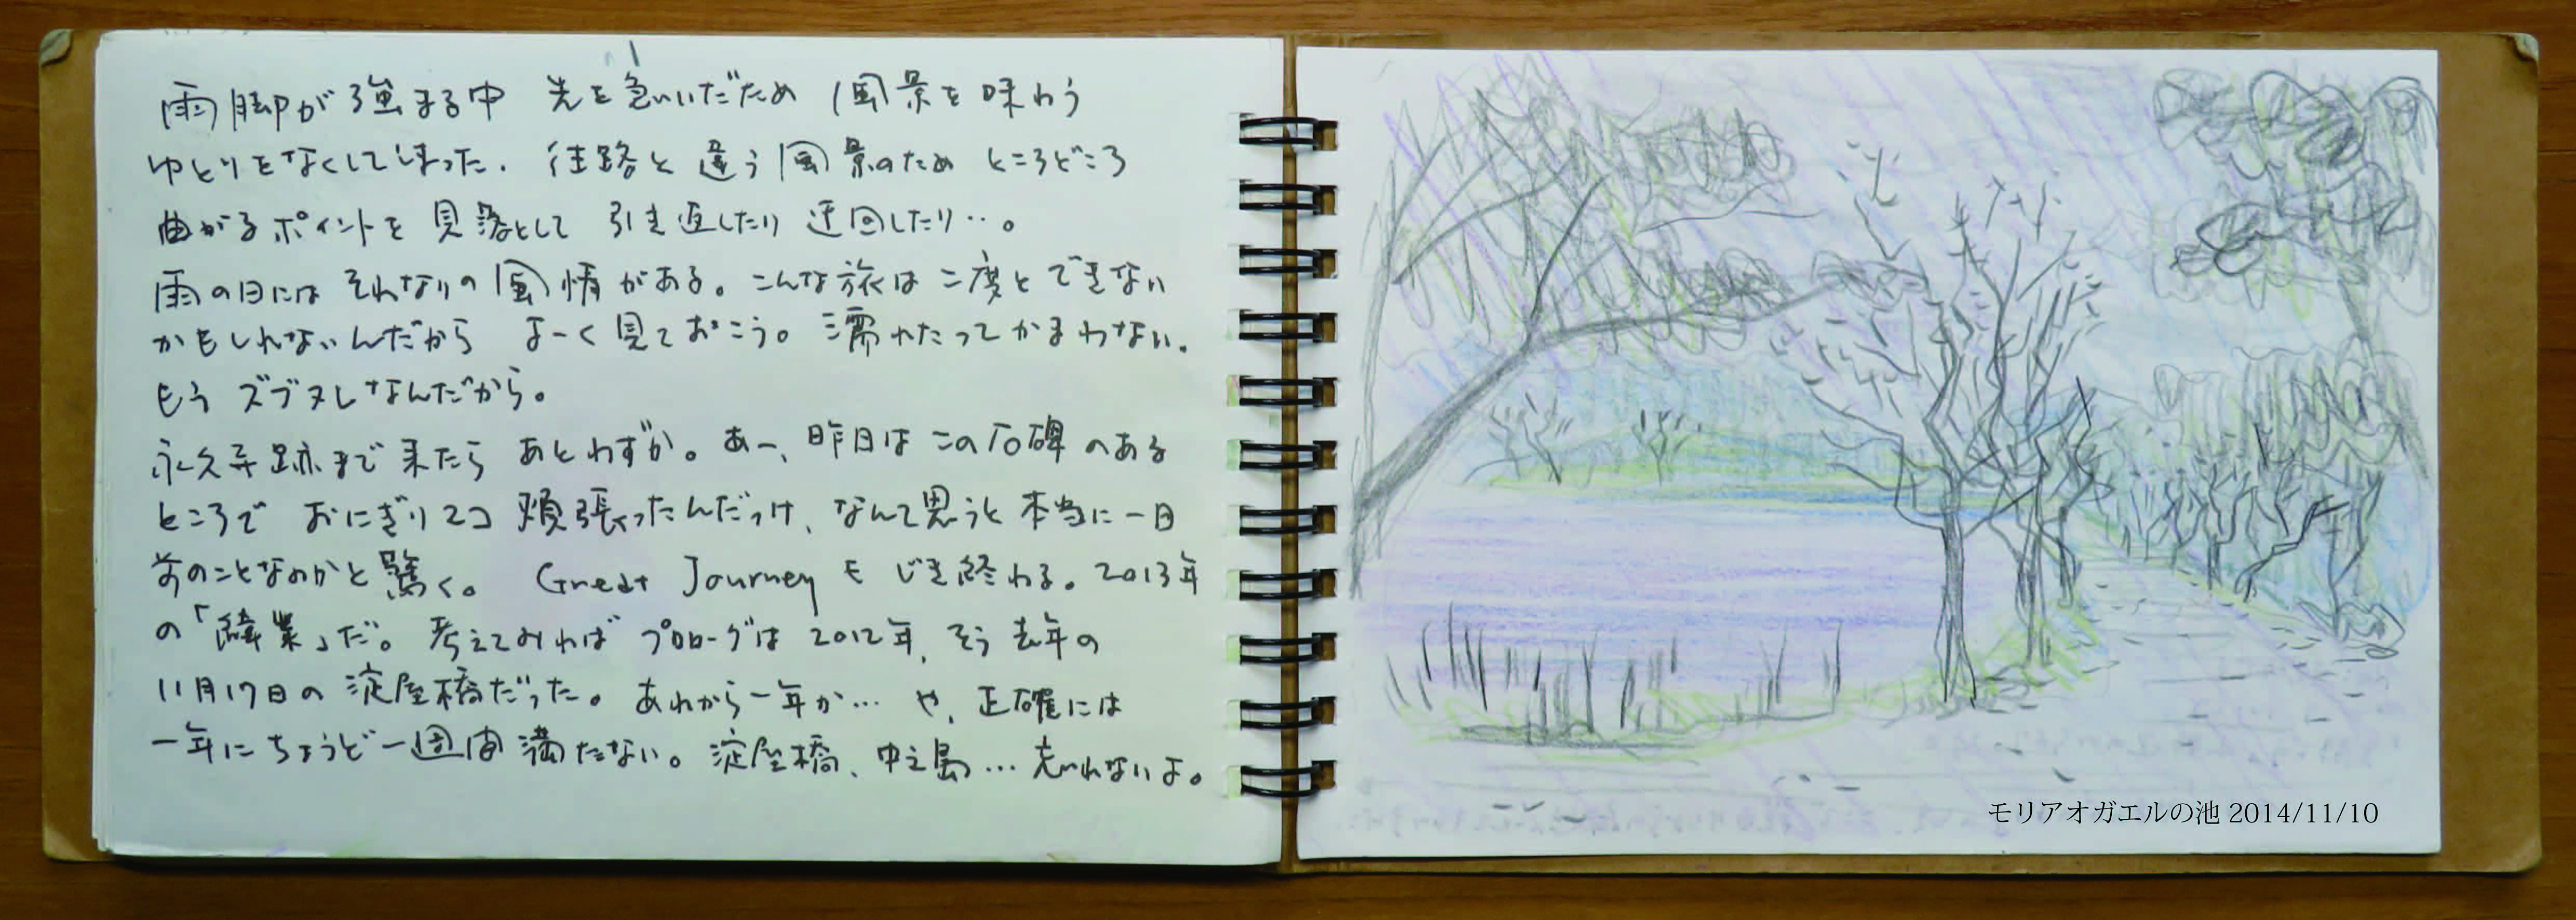 雨脚が強まる中 先を急いだため 風景を味わう
ゆとりをなくしてしまった. 往路と違う風景のため ところどころ
曲がるポイントを見落として 引き返したり 迂回したり…。
雨の日には それなりの風情がある。こんな旅は二度とできない
かもしれないんだから よーく見ておこう。濡れたってかまわない.
もう ズブヌレなんだから。
永久寺跡まで来たら あとわずか。あー、昨日はこの石碑のある
ところで おにぎり2コ 頬張ったんだっけ、なんて思うと本当に一日
前のことなのかと驚く。 Great Journeyも じき終わる。2013年
の「偉業」だ。考えてみれば プロローグは2012年, そう去年の
11月17日の淀屋橋だった。あれから一年か… や, 正確には
一年にちょうど一週間満たない。淀屋橋、中之島…忘れないよ。
モリアオガエルの池 2014/11/10